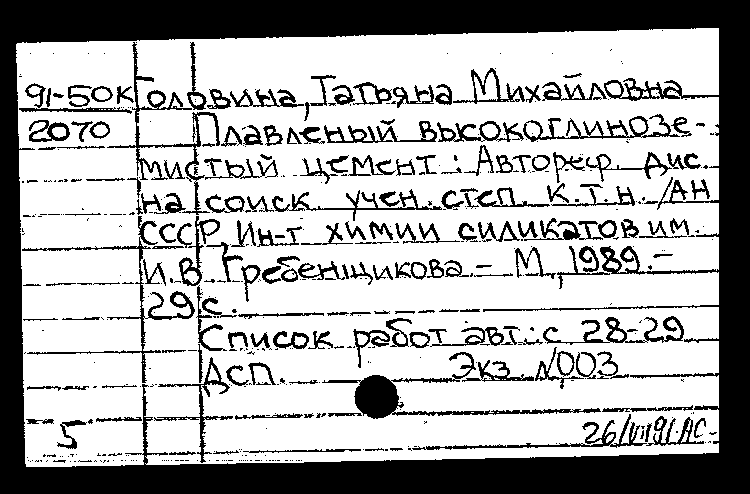 91-50К Головина, Татьяна Михайловна
2070 Плавленый высокоглинозе-
мистый цемент : Автореф. дис.
на соиск. учен. степ. к.т.н. /АН
СССР, Ин-т химии силикатов им.
И.В. Гребенщикова. - М., 1989. -
29 с.
Список работ авт.: с 28-29
ДСП. Экз. №003
5